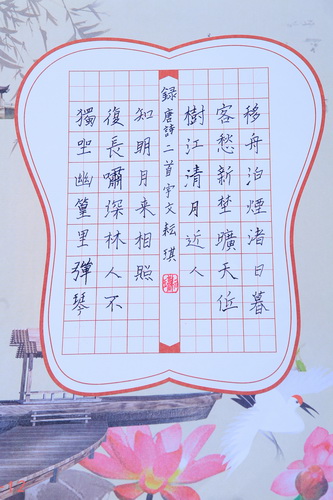 移舟泊煙渚日暮
客愁新埜曠天低
樹江清月近人
獨坐幽篁里彈琴
復長嘯深林人不
知明月来相照
録唐詩二首宇文耘琪